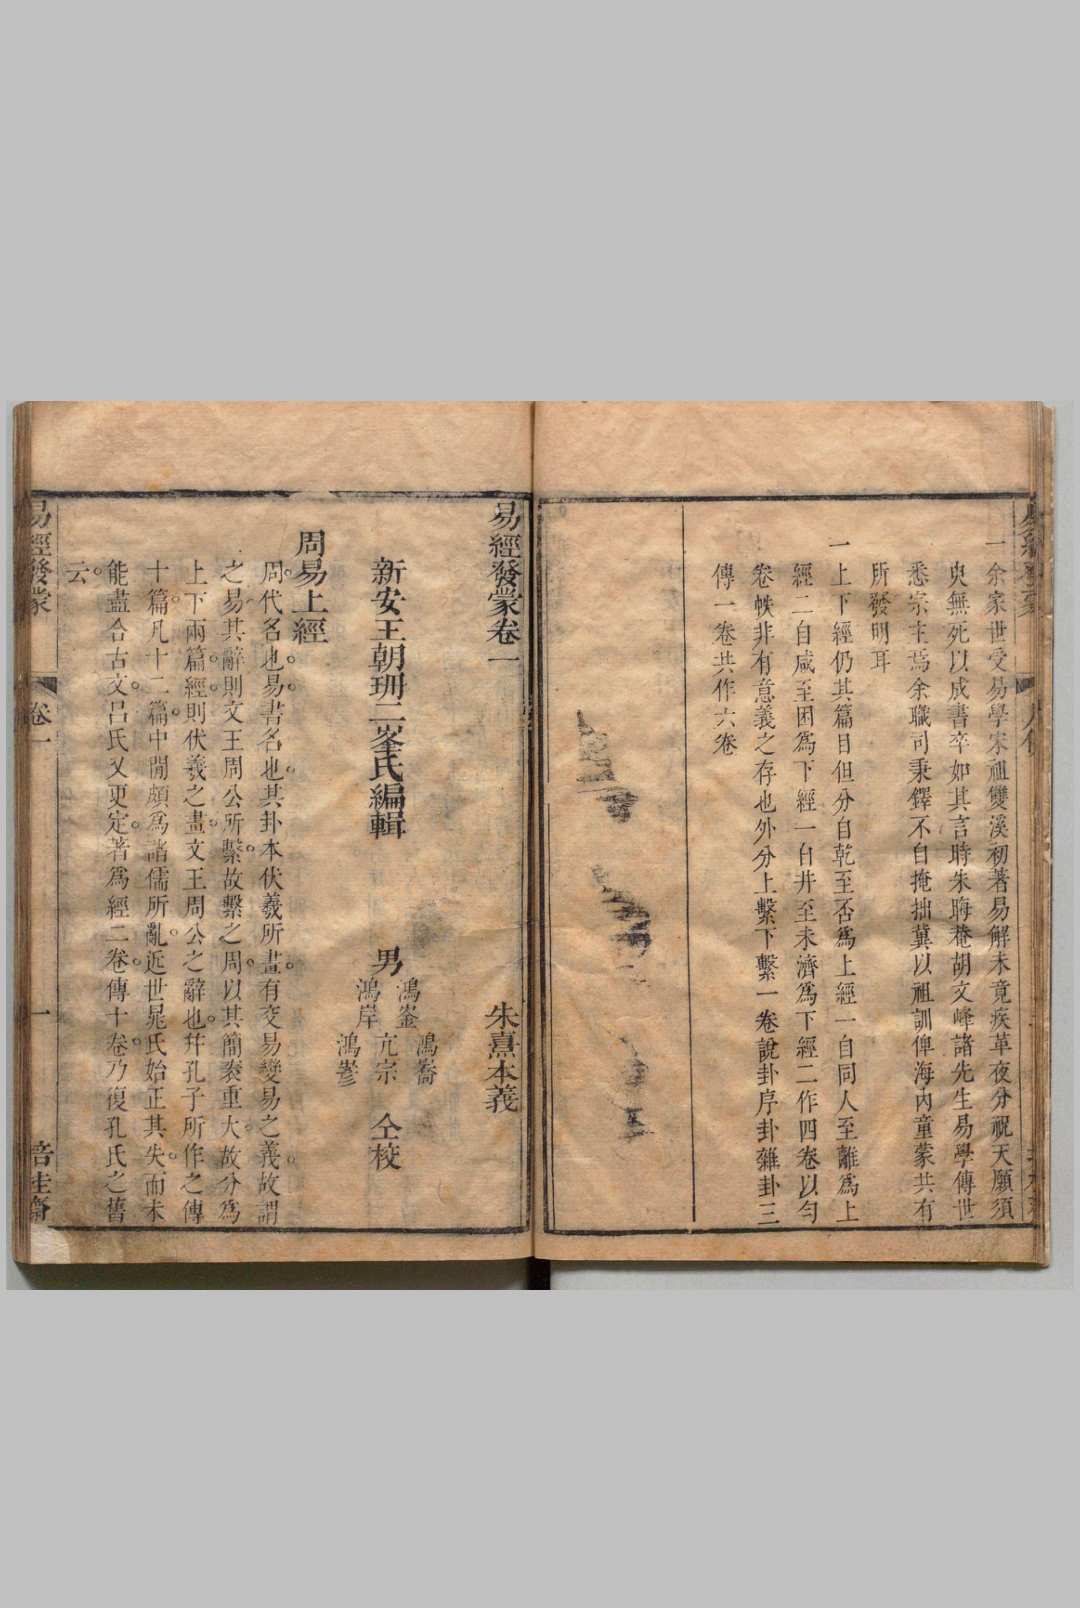 一余家世受易學宋祖雙溪初著易解未竟疾革夜分祝天願須
臾無死以成書卒如其言時朱晦菴胡文峰諸先生易學傳世
悉宗主焉余職司秉鐸不自掩拙冀以祖訓俾海內童蒙共有
所發明耳
一上下經仍其篇目但分自乾至否為上經一自同人至離為上
經二自咸至困為下經一自井至未濟為下經二作四卷以勻
卷帙非有意義之存也外分上繫下繫一卷說卦序卦雜卦三
傳一卷共作六卷
易經發蒙卷一
朱熹本義
新安王朝珊二峯氏編輯
男
鴻喬
鴻崟
亢宗
鴻岸
鴻嵾
仝校
周易上經
周代名也易書名也其卦本伏羲所畫有交易變易之義故謂
之易其辭則文王周公所繫故繫之周以其簡袠重大故分為
上下兩篇經則伏羲之畫文王周公之辭也幷孔子所作之傳
十篇凡十二篇中閒頗為諸儒所亂近世晁氏始正其失而未
能盡合古文呂氏又更定著為經二卷傳十卷乃復孔氏之舊
云
易經發蒙
卷一
一